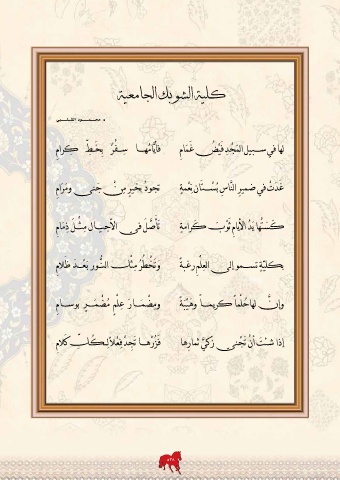 كلية الشوبك الجامعية
د. محمود الشلبي
لها في سبيل المَجْدِ فَيْضُ غَمَامِ فأيّامُها سِفْرٌ بِخَطِّ كِرامِ
غَدَتْ في ضميرِ النَّاسِ بُسْتانَ نِعْمةٍ تجودُ بخيرٍ مِنْ جَنى ومَرَامِ
كَسَتْها يَدُ الأيامِ ثَوْبَ كَرَامةٍ تأصَّلَ في الأجيالِ مِثْلَ ذِمَامِ
بكليّة تسمو إلى العِلْمِ رغبةً وتَخْطُرُ مِثْلَ النُّورِ بَعْدَ ظلامِ
وإنَّ لها حُلْماً كريماً وهَيْبَةً ومِضْمَارَ عِلْمٍ مُضْمَرٍ بوِسامِ
إذا شئتَ أنْ تَجْني زكيَّ ثمارِها فَزُرْها تجدْ فِعْلاً لكُلِّ كلامِ